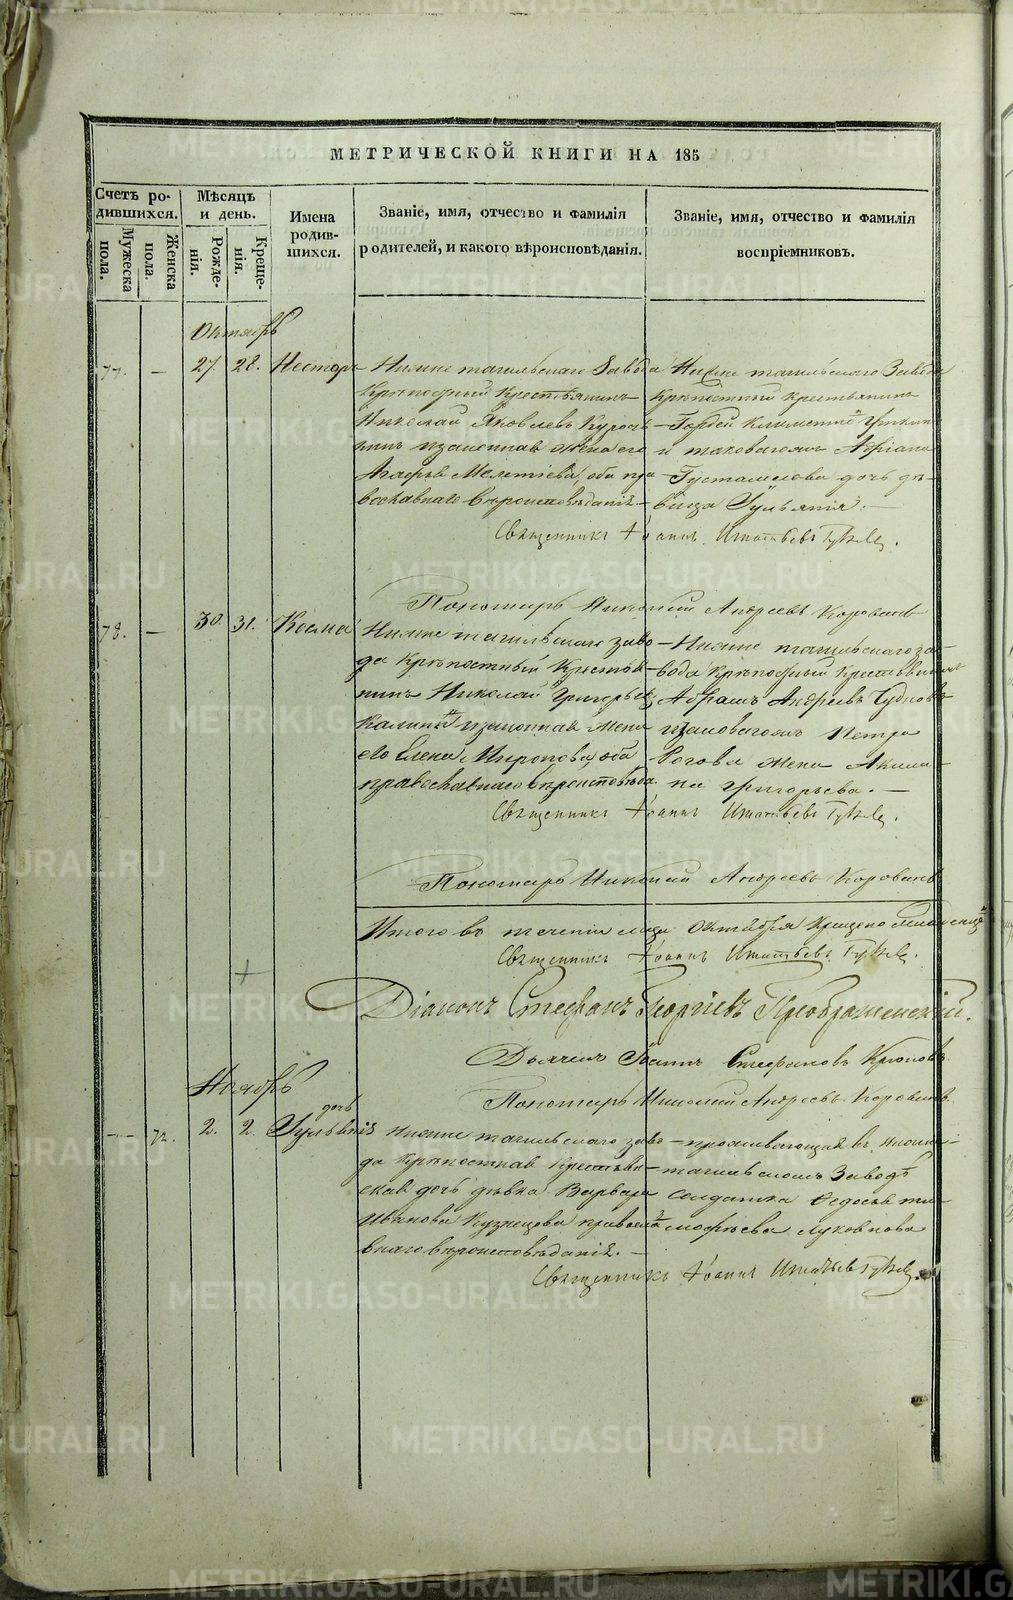 МЕТРИЧЕСКОЙ КНИГИ НА 185
Счетъ ро-
дившихся.
Мѣсяцъ
и день.
Имена
родив-
шихся.
Званіе, имя, отчество и фамилія
родителей, и какого вѣроисповѣданія.
Званіе, имя, отчество и фамилія
воспріемниковъ.
Мужеска
пола.
Женска
пола.
Рожде-
нія.
Креще-
нія.
Октябрь
77. — 27. 28. Несторъ
Нижне тагильскаго Завода
Крѣпостный Крестьянинъ
Николай Яковлевъ Куроч-
кинъ и законная жена его
Агафья Мелетіева, оба пра-
вославнаго вѣроисповѣданія. —
Нижне тагильскаго Завода
Крѣпостный крестьянинъ
Гордей
и таковагожъ Адріана
дочь дѣ-
вица Гульянія. —
Священникъ Іоаннъ Игнатьевъ
Пономарь Николай Андреевъ Коровинъ
78. — 30. 31. Косма
Нижне тагильскаго заво-
да Крѣпостный Крестья-
нинъ Николай Григорьевъ
Калинин и законная жена
его Елена Миронова, оба
православнаго вѣроисповѣда
Нижне тагильскаго за-
вода Крѣпостный Крестьянинъ
Абрамъ Андреевъ
и таковагожъ Петра
Рогова жена Акили-
на Григорьева. —
Священникъ Іоаннъ Игнатьевъ
Пономарь Николай Андреевъ Коровинъ
Итого въ теченіи мѣца Октября Крещено
Священникъ Іоаннъ Игнатьевъ
Діаконъ Стефанъ Георгіевъ Преображенскій.
Дьячекъ Іоаннъ Стефановъ
Пономарь Николай Андреевъ Коровинъ
Ноябрь
72. 2. 2. дочь
Гульянія
Нижне тагильскаго заво-
да Крѣпостная Крестьян-
ская дочь дѣвка Варвара
Иванова Кузнецова правосла-
внаго вѣроисповѣданія. —
проживающая въ Нижне-
тагильскомъ Заводѣ
солдатка Ѳедосья ти-
мофѣева Луковнова
Священникъ Іоаннъ Игнатьевъ
METRIKI.GASO-URAL.RU